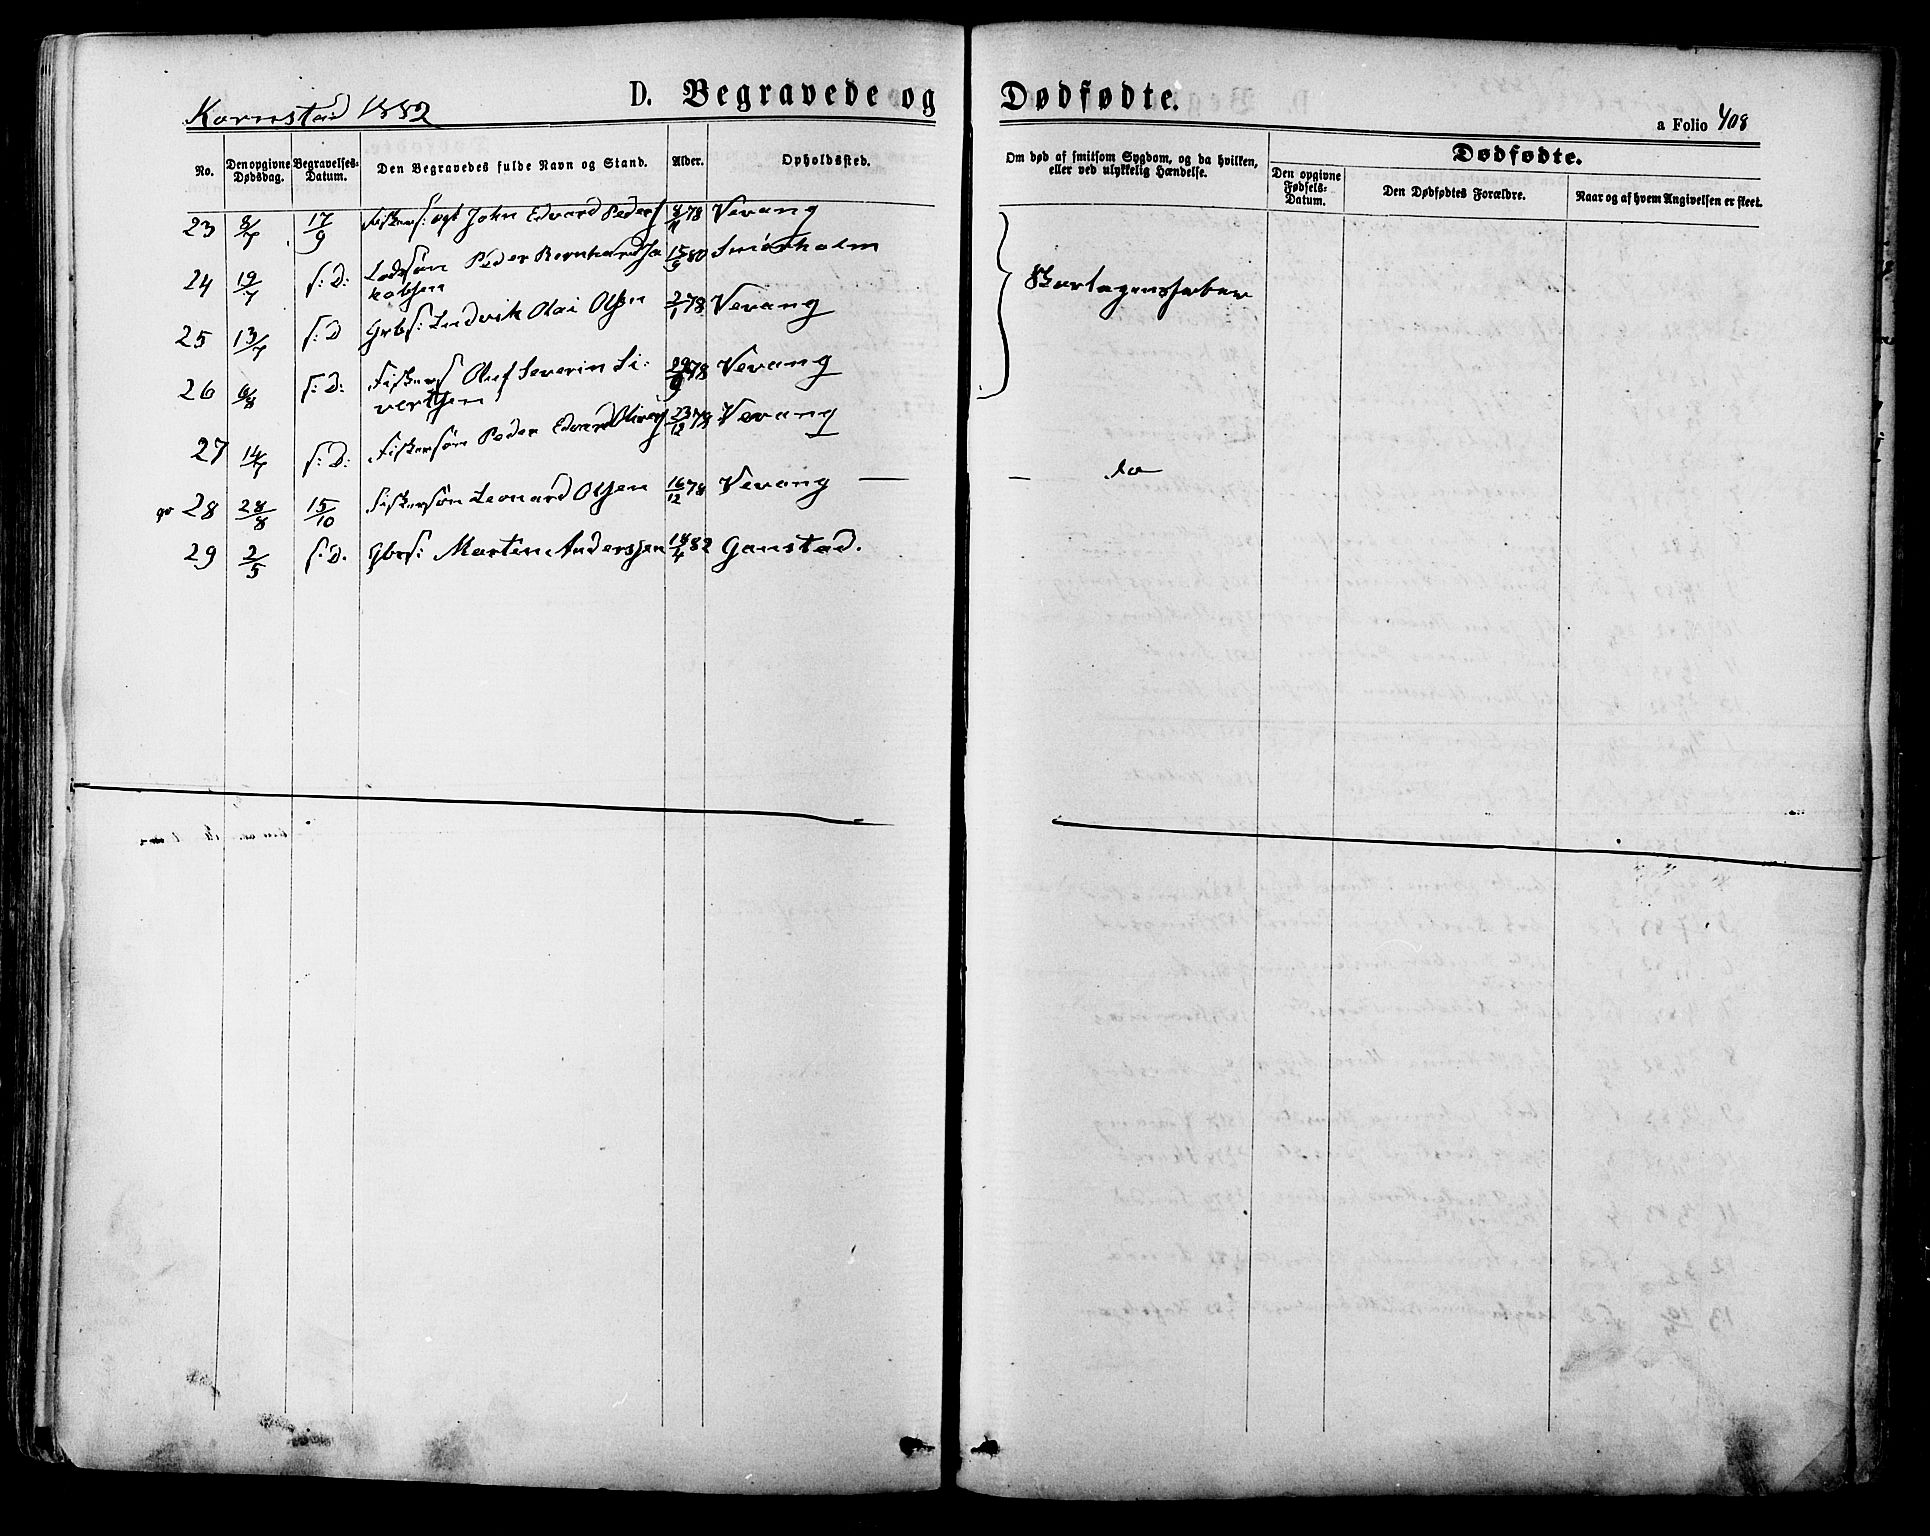 Kornstad 1882
D. Begravede og Dødfødte.
a Folio 408
No.
Den opgivne Dødsdag.
Begravelses-Datum.
Den Begravedes fulde Navn og Stand.
Alder.
Opholdssted.
Om død af smitsom Sygdom, og da hvilken,
eller ved ulykkelig Hændelse.
Dødfødte.
Den opgivne Fødsels-Datum.
Den Dødfødtes Forældre.
Naar og af hvem Angivelsen er skeet.
23 17/9 John Edvard Peders 78 Vevang
24 19/7 s: D: Peder Bernhard Ja 15/9 80 Smørholm
kobsen
Skarlagensfeber
25 13/7 s: D Gbrs: Ludvik Olai Olsen 2/1 78 Vevang
26 6/8 s: D: Fiskers Oluf Severin Si- 29/9 78 Vevang
vertsen
27 14/7 s: D: Fiskersøn Peder Edvard 23/12 Vevang
do
28 28/8 15/10 Fiskersøn Leonard Olsen 16/12 78 Vevang —
29 2/5 s: D. Gbrs: Morten Anderssen 18/4 82 Gaustad.